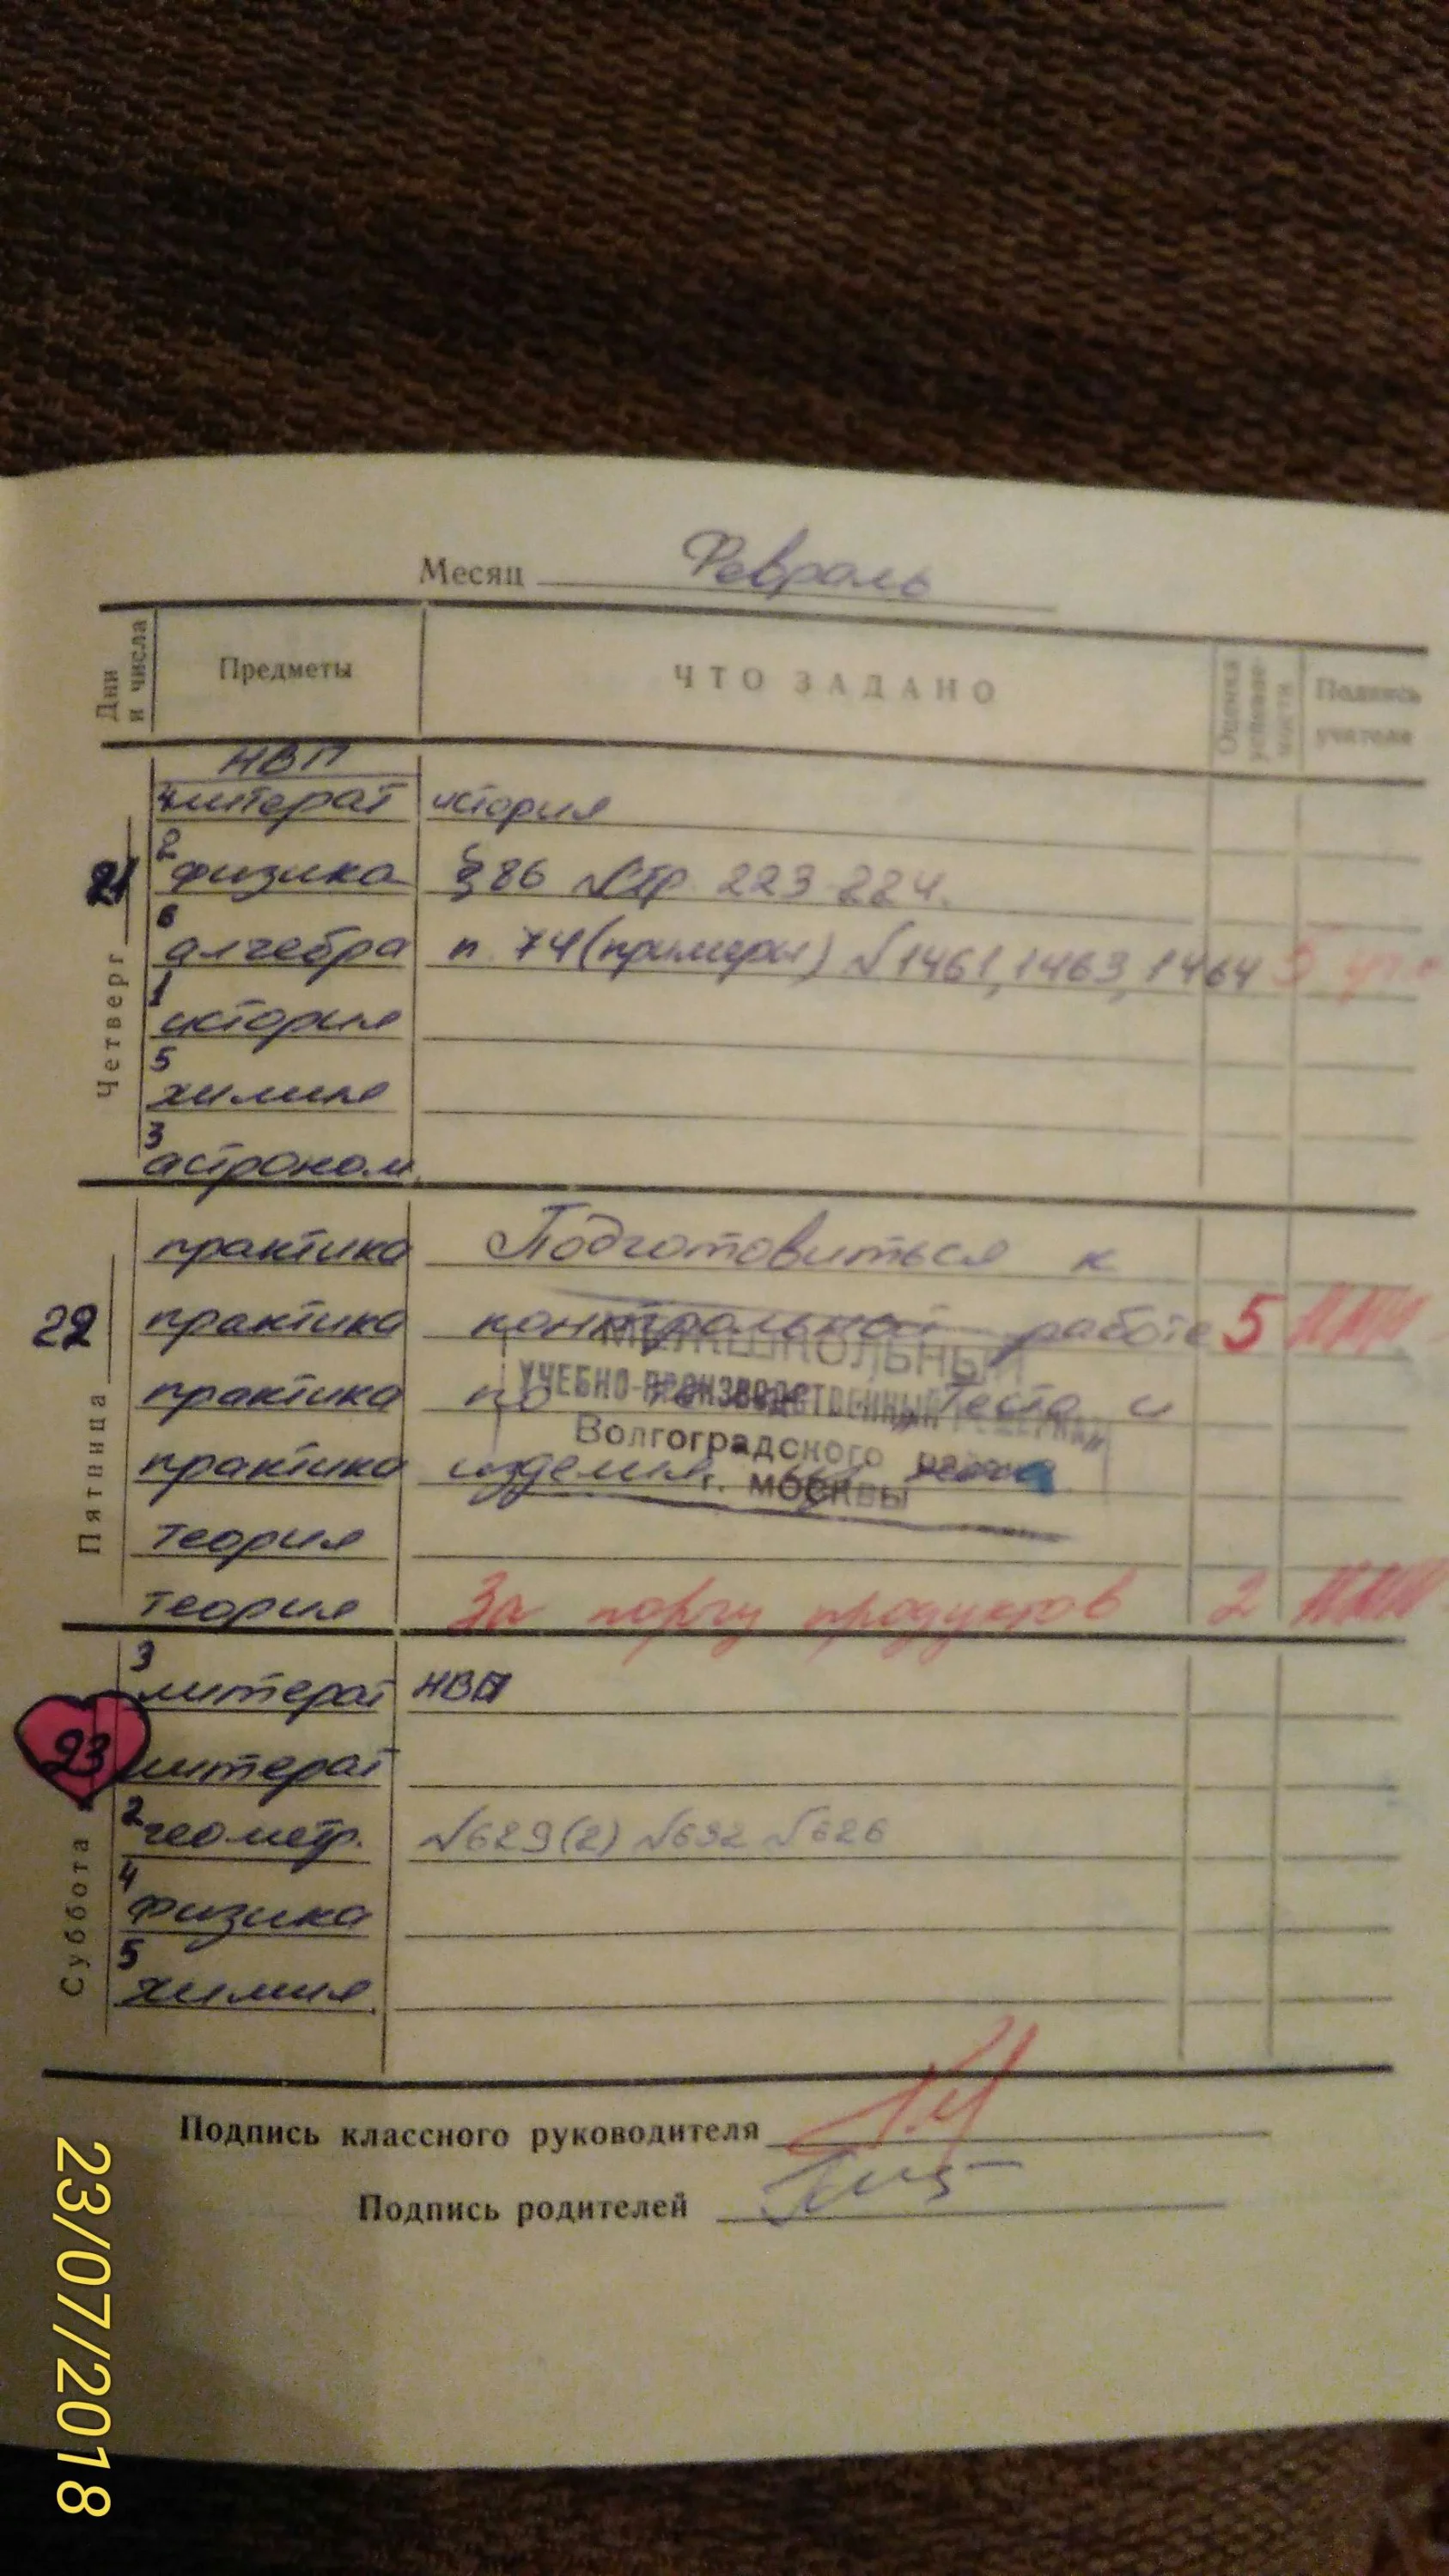 Месяц Февраль
Дни и числа Предметы ЧТО ЗАДАНО Оценка успеваемости Подпись учителя
НВП
4 литерат история
2 физика § 86 стр 223-224.
6 алгебра п. 74 (примеры) №1461, 1463, 1464 5
1 история
5 химия
3 астроном.
Четверг 21
практика Подготовиться к
практика контрольной работе 5
практика по теме „Теста и
практика изделия из него“
теория
теория За порчу продуктов 2
Пятница 22
МЕЖШКОЛЬНЫЙ
УЧЕБНО-ПРОИЗВОДСТВЕННЫЙ
Волгоградского района
г. МОСКВЫ
3 литерат НВП
литерат
2 геометр. №629(2) №632 №626
4 физика
5 химия
Суббота 23
Подпись классного руководителя
Подпись родителей
23/07/2018